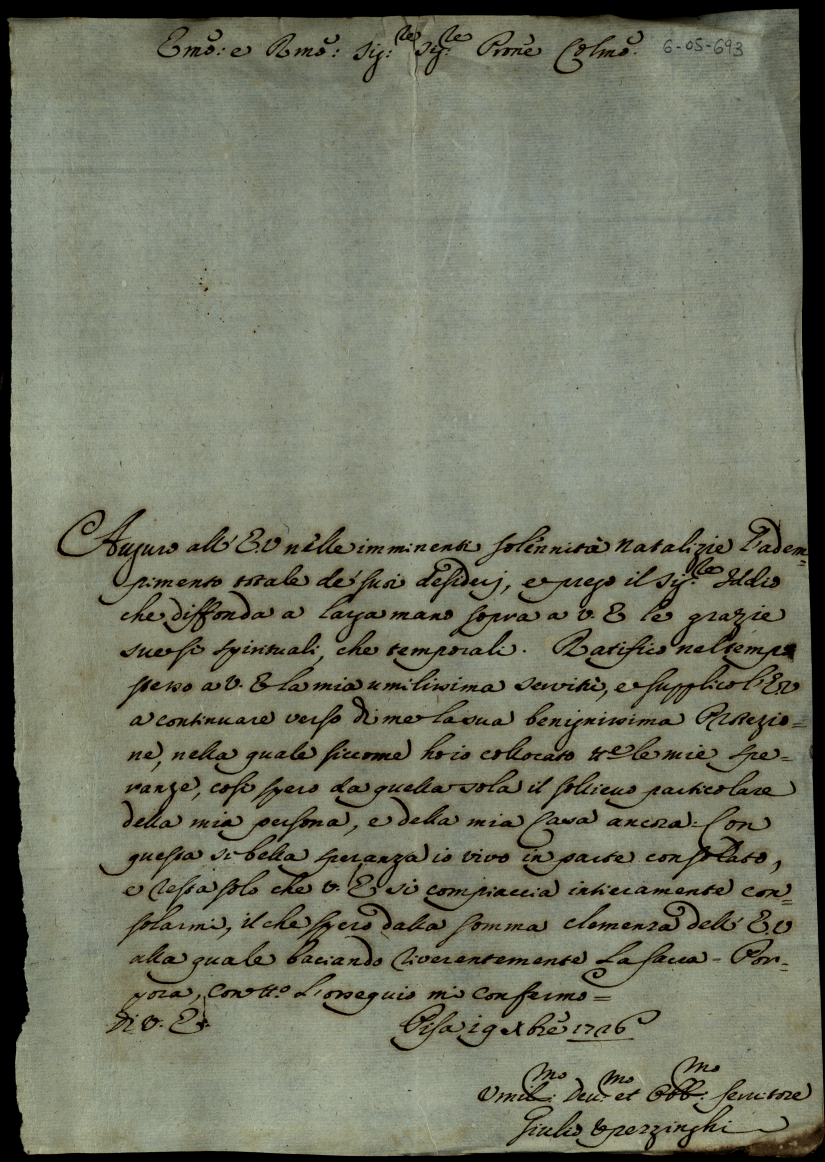 Emo: e Rmo: Sig:re Sig:re Prone Colmo: 6-05-693
Auguro all' E V nelle imminenti solennità natalizie l'adem-
pimento totale de' suoi desiderj, e prego il Sig:re Iddio
che diffonda a larga mano sopra a V. E le grazie
sue si spirituali, che temporali. Ratifico nel tempo
stesso a V. E la mia umilissima servitù, e supplico l'E V
a continuare verso di me la sua benignissima Protezio=
ne, nella quale siccome ho io collocato tte le mie spe=
ranze, così spero da quella sola il sollievo particolare
della mia persona, e della mia Casa ancora: Con
questa si bella speranza io vivo in parte consolato,
e resta solo che V. E. si compiaccia intieramente con=
solarmi, il che spero dalla somma clemenza dell' E. V
alla quale baciando riverentemente La sacra - Por-
pora, con tto L'ossequio mi confermo =
Di V. E. Pisa 19 Xbre 1726
Umil:mo Dev:mo et Obb:mo servitore
Giulio